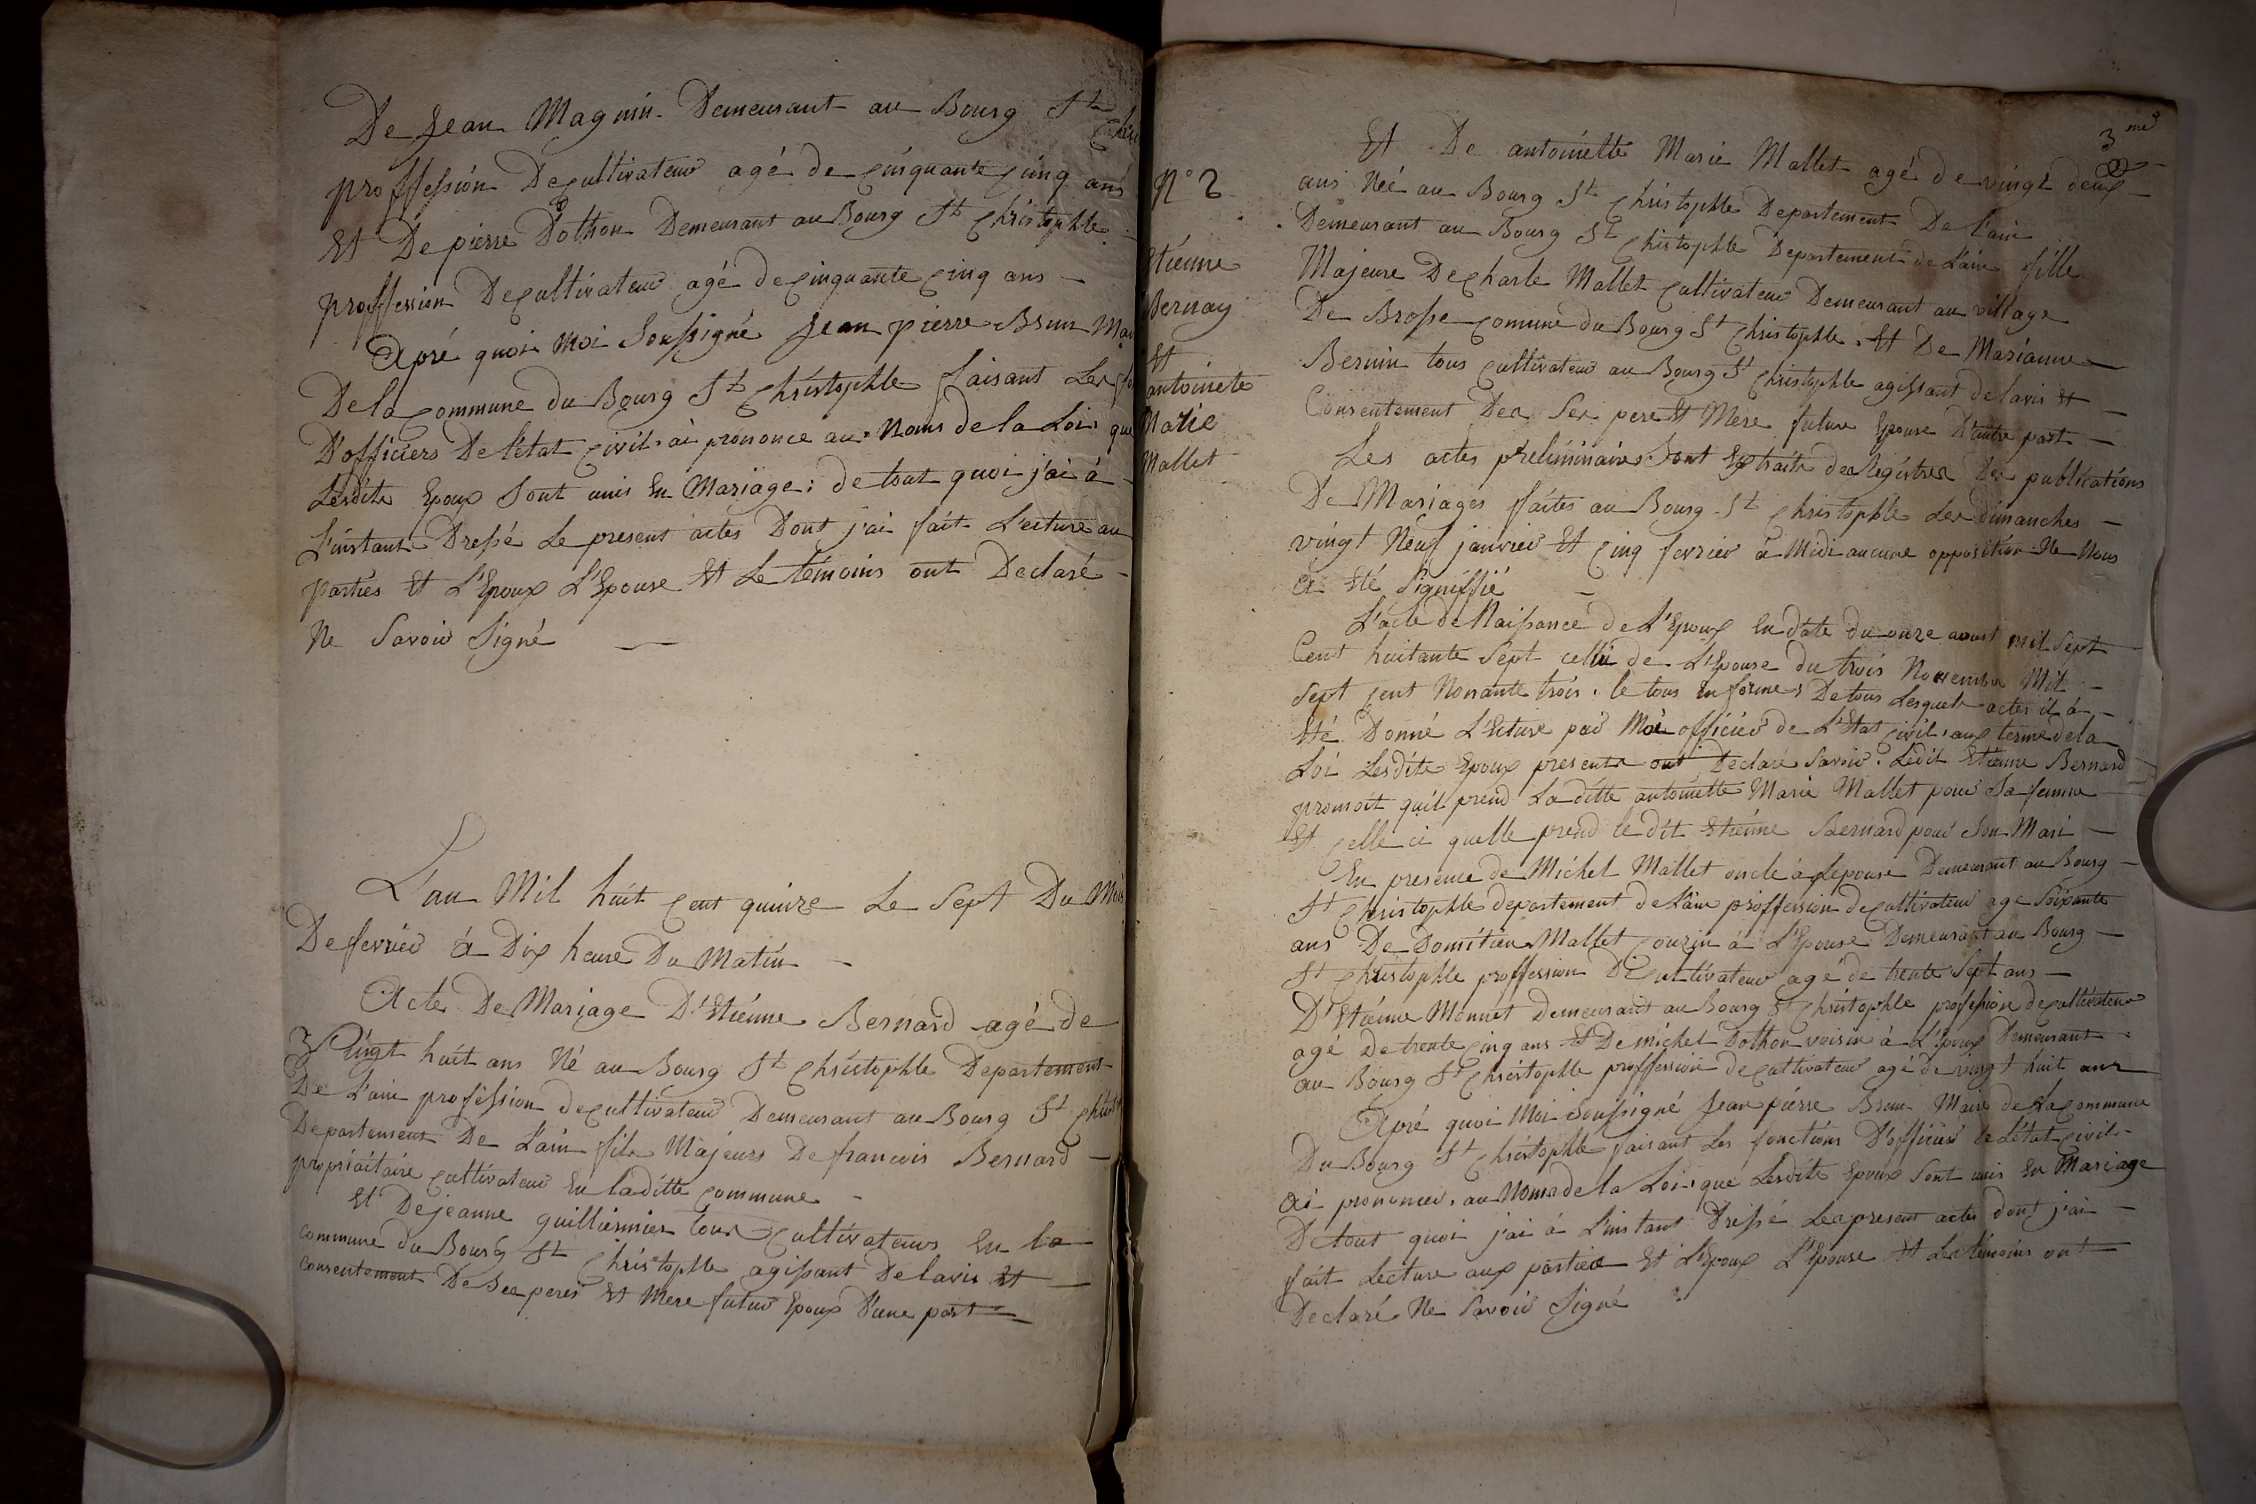 De Jean Magnin Demeurant au Bourg St
proffession De cultivateur agé de cinquante cinq ans
Et De pierre Dothon Demeurant au Bourg St Christophle
proffession De cultivateur agé de cinquante cinq ans
Apré quoi moi soussigné Jean pierre Brun
De la commune du Bourg St Christophle faisant les
D'officiers De l'état civil, ai prononcé au Noms de la Loi que
Lesdits Epoux sont unis En Mariage ; de tout quoi j'ai à
l'instant Dressé Le present actes Dont j'ai fait Lecture au
parties Et L'Epoux L'Epouse Et Le témoins ont Declaré
Ne Savoir Signé
L'an Mil huit cent quinze Le Sept Du Mois
De fevrier à Dix heure Du Matin
Acte De Mariage D'Etiénne Bernard agé de
Vingt huit ans Né au Bourg St Christophle Departement
De L'ain profession de cultivateur Demeurant au Bourg St
Departement De Lain fils Majeurs De francois Bernard
propriaitaire cultivateur En la ditte commune
Et De jeanne guilliermier tous cultivateurs En la
commune du Bourg St Christophle agissant De lavis Et
consentement De Ses peres Et Mere futur Epoux D'une part
3me
N° 2
Etienne
Bernay
Et
antoinete
Marie
Mallet
Et De antoinette Marie Mallet agé de vingt deux
ans Neé au Bourg St Christophle Departement De l'ain
Demeurant au Bourg St Christophle Departement de L'ain fille
Majeure De charle Mallet cultivateur Demeurant au village
De Brosse comune du Bourg St Christophle. Et De Marianne
Bernin tous cultivateur au Bourg St Christophle agissant de lavis Et
Consentement Des Ses pere Et Mere future Epouse D'autre part
Les actes preliminaires Sont Extraits des Registres Des publications
De Mariages faites au Bourg St Christophle Les dimanches
vingt Neuf janvier Et cinq fevrier à Midi aucune opposition Ne Nous
a Eté Signiffié
L'acte de Naissance de L'Epoux En date du onze aoust mil Sept
Cent huitante Sept celui de L'Epouse du trois Novembre Mil
Sept cent Nonante trois. le tous en forme ; De tous Lesquels actes il à
Eté Donné L'Ecture par Moi officier de L'Etat civil, aux terme de la
Loi Lesdits Epoux presents ont Declaré Savoir. Ledit Etiénne Bernard
promoit quil prend La ditte antoinette Marie Mallet pour Sa femme
Et celle ci quelle prend le dit Etiénne Bernard pour Son Mari
En presence de Michel Mallet oncle à Lepouse Demeurant au Bourg
St Christophle departement de L'ain proffession de cultivateur age Soixante
ans De Domitien Mallet couzin à L'Epouse Demeurant au Bourg
St Christophle proffession De cultivateur agé de trente Sept ans
D'Etiénne Monnet Demeurant au Bourg St Christophle profession de cultivateur
agé De trente cinq ans Et De michel Dothon voisin à L'Epoux Demeurant
au Bourg St Christophle proffession de cultivateur agé de vingt huit ans
Apré quoi Moi soussigné Jean pierre Brun Maire de La commune
Du Bourg St Christophle faisant Les fonctions D'officier de L'état civil
ai prononcer, au Noms de la Loi, que Lesdits Epoux Sont unis En Mariage
De tout quoi j'ai à L'instant Dressé Les present actes dont j'ai
fait Lecture aux parties Et L'Epoux L'Epouse Et Les témoins ont
Declaré Ne Savoir Signé